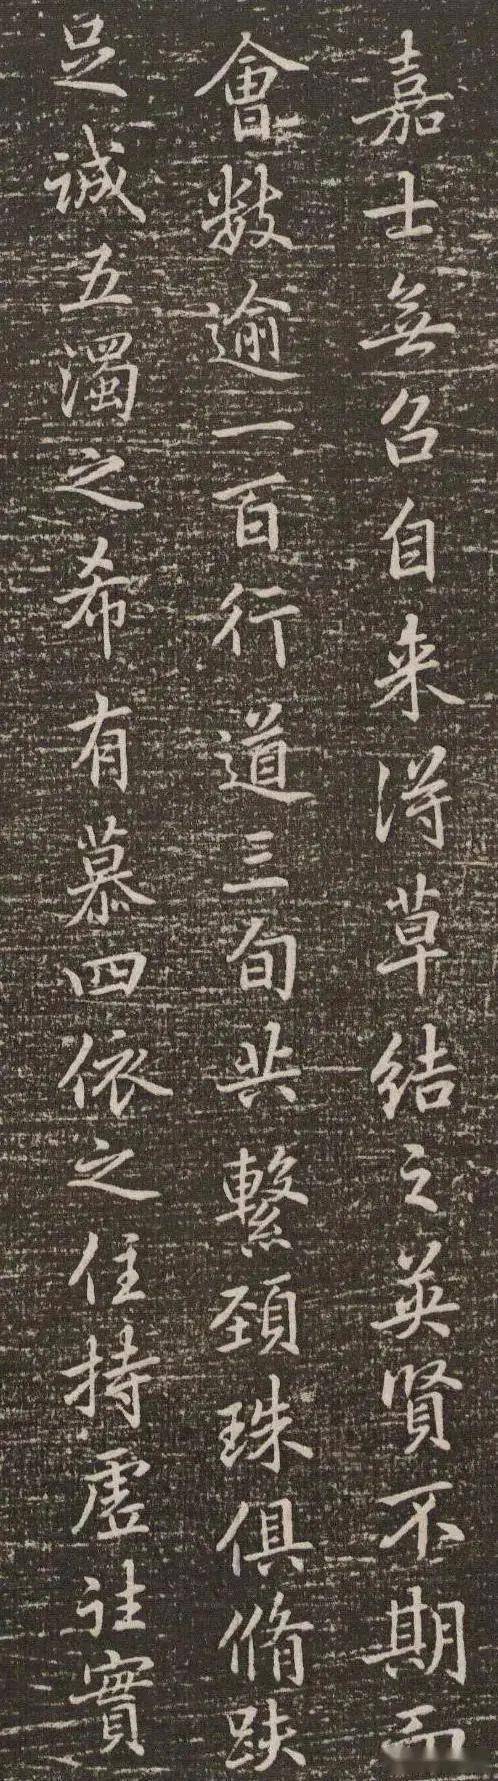 嘉士無召自来得草結之英賢不期而
會數逾一百行道三旬共繫頚珠俱脩趺
足誠五濁之希有慕四依之住持虚往實